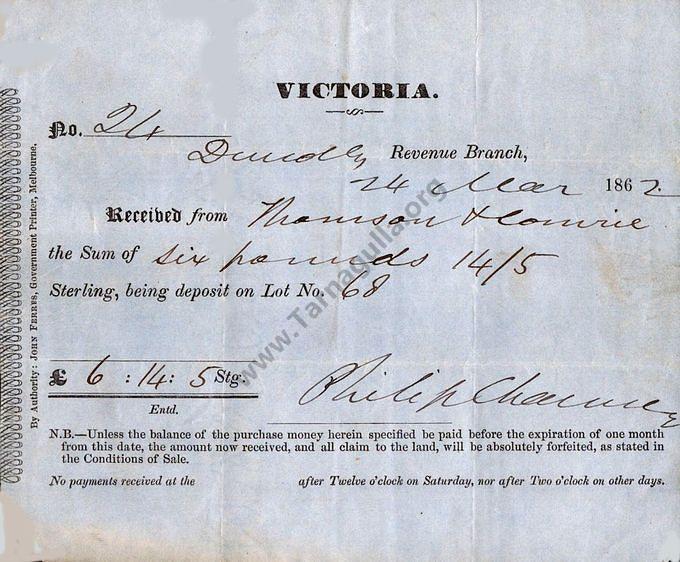 VICTORIA.
No. 24
Dunolly Revenue Branch,
24 Mar 1862
Received from Thomson & Comrie
the Sum of six pounds 14/5
Sterling, being deposit on Lot No. 68
£ 6 : 14 : 5 Stg.
Entd.
Philip Chauncy
N.B.—Unless the balance of the purchase money herein specified be paid before the expiration of one month
from this date, the amount now received, and all claim to the land, will be absolutely forfeited, as stated in
the Conditions of Sale.
No payments received at the after Twelve o'clock on Saturday, nor after Two o'clock on other days.
By Authority: JOHN FERRES, Government Printer, Melbourne.
www.Tarnagulla.org